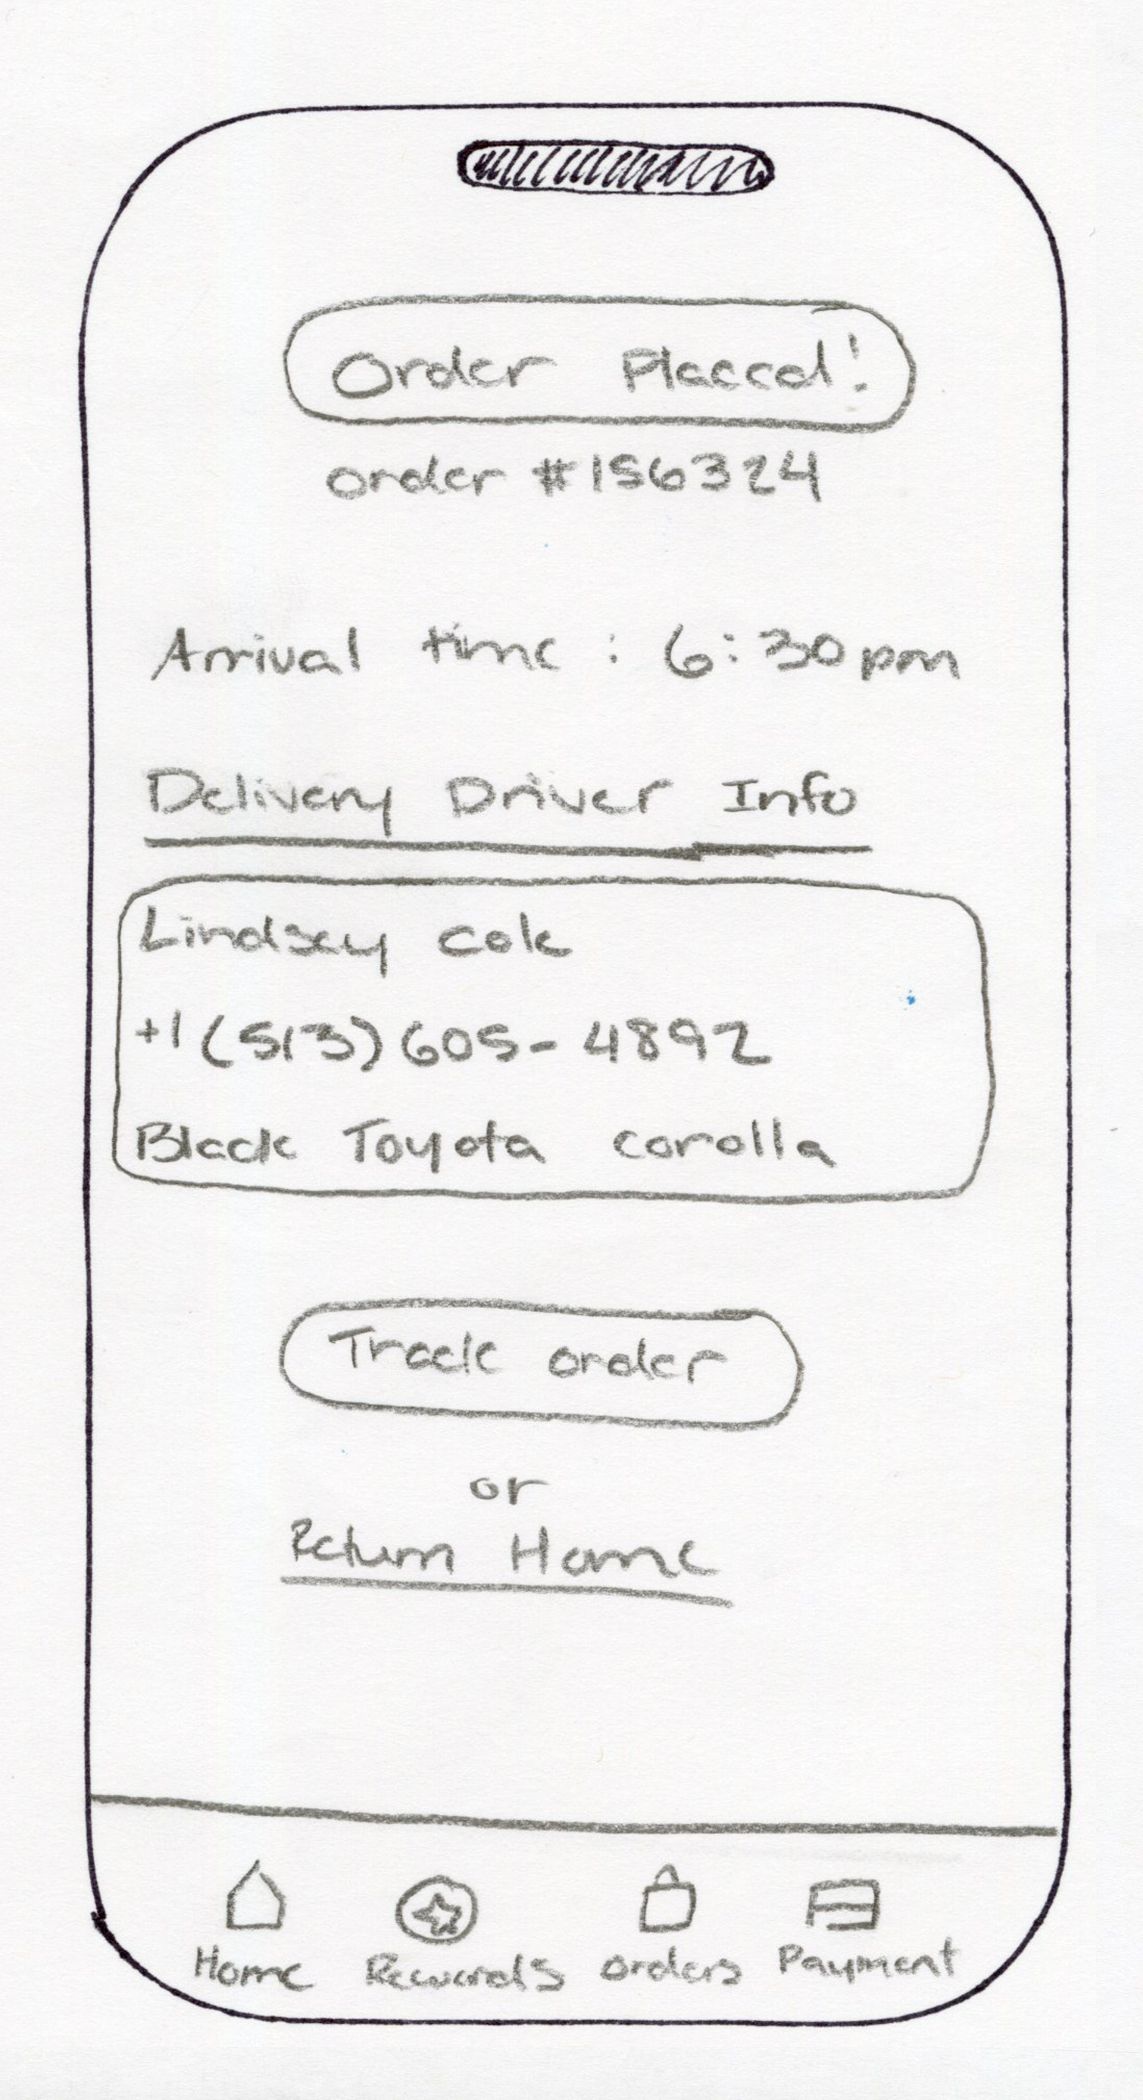 Order Placed!
order #156324
Arrival time : 6:30pm
Delivery Driver Info
Lindsey Cole
+1 (513) 605-4892
Black Toyota corolla
Track order
or
Return Home
Home Rewards orders Payment